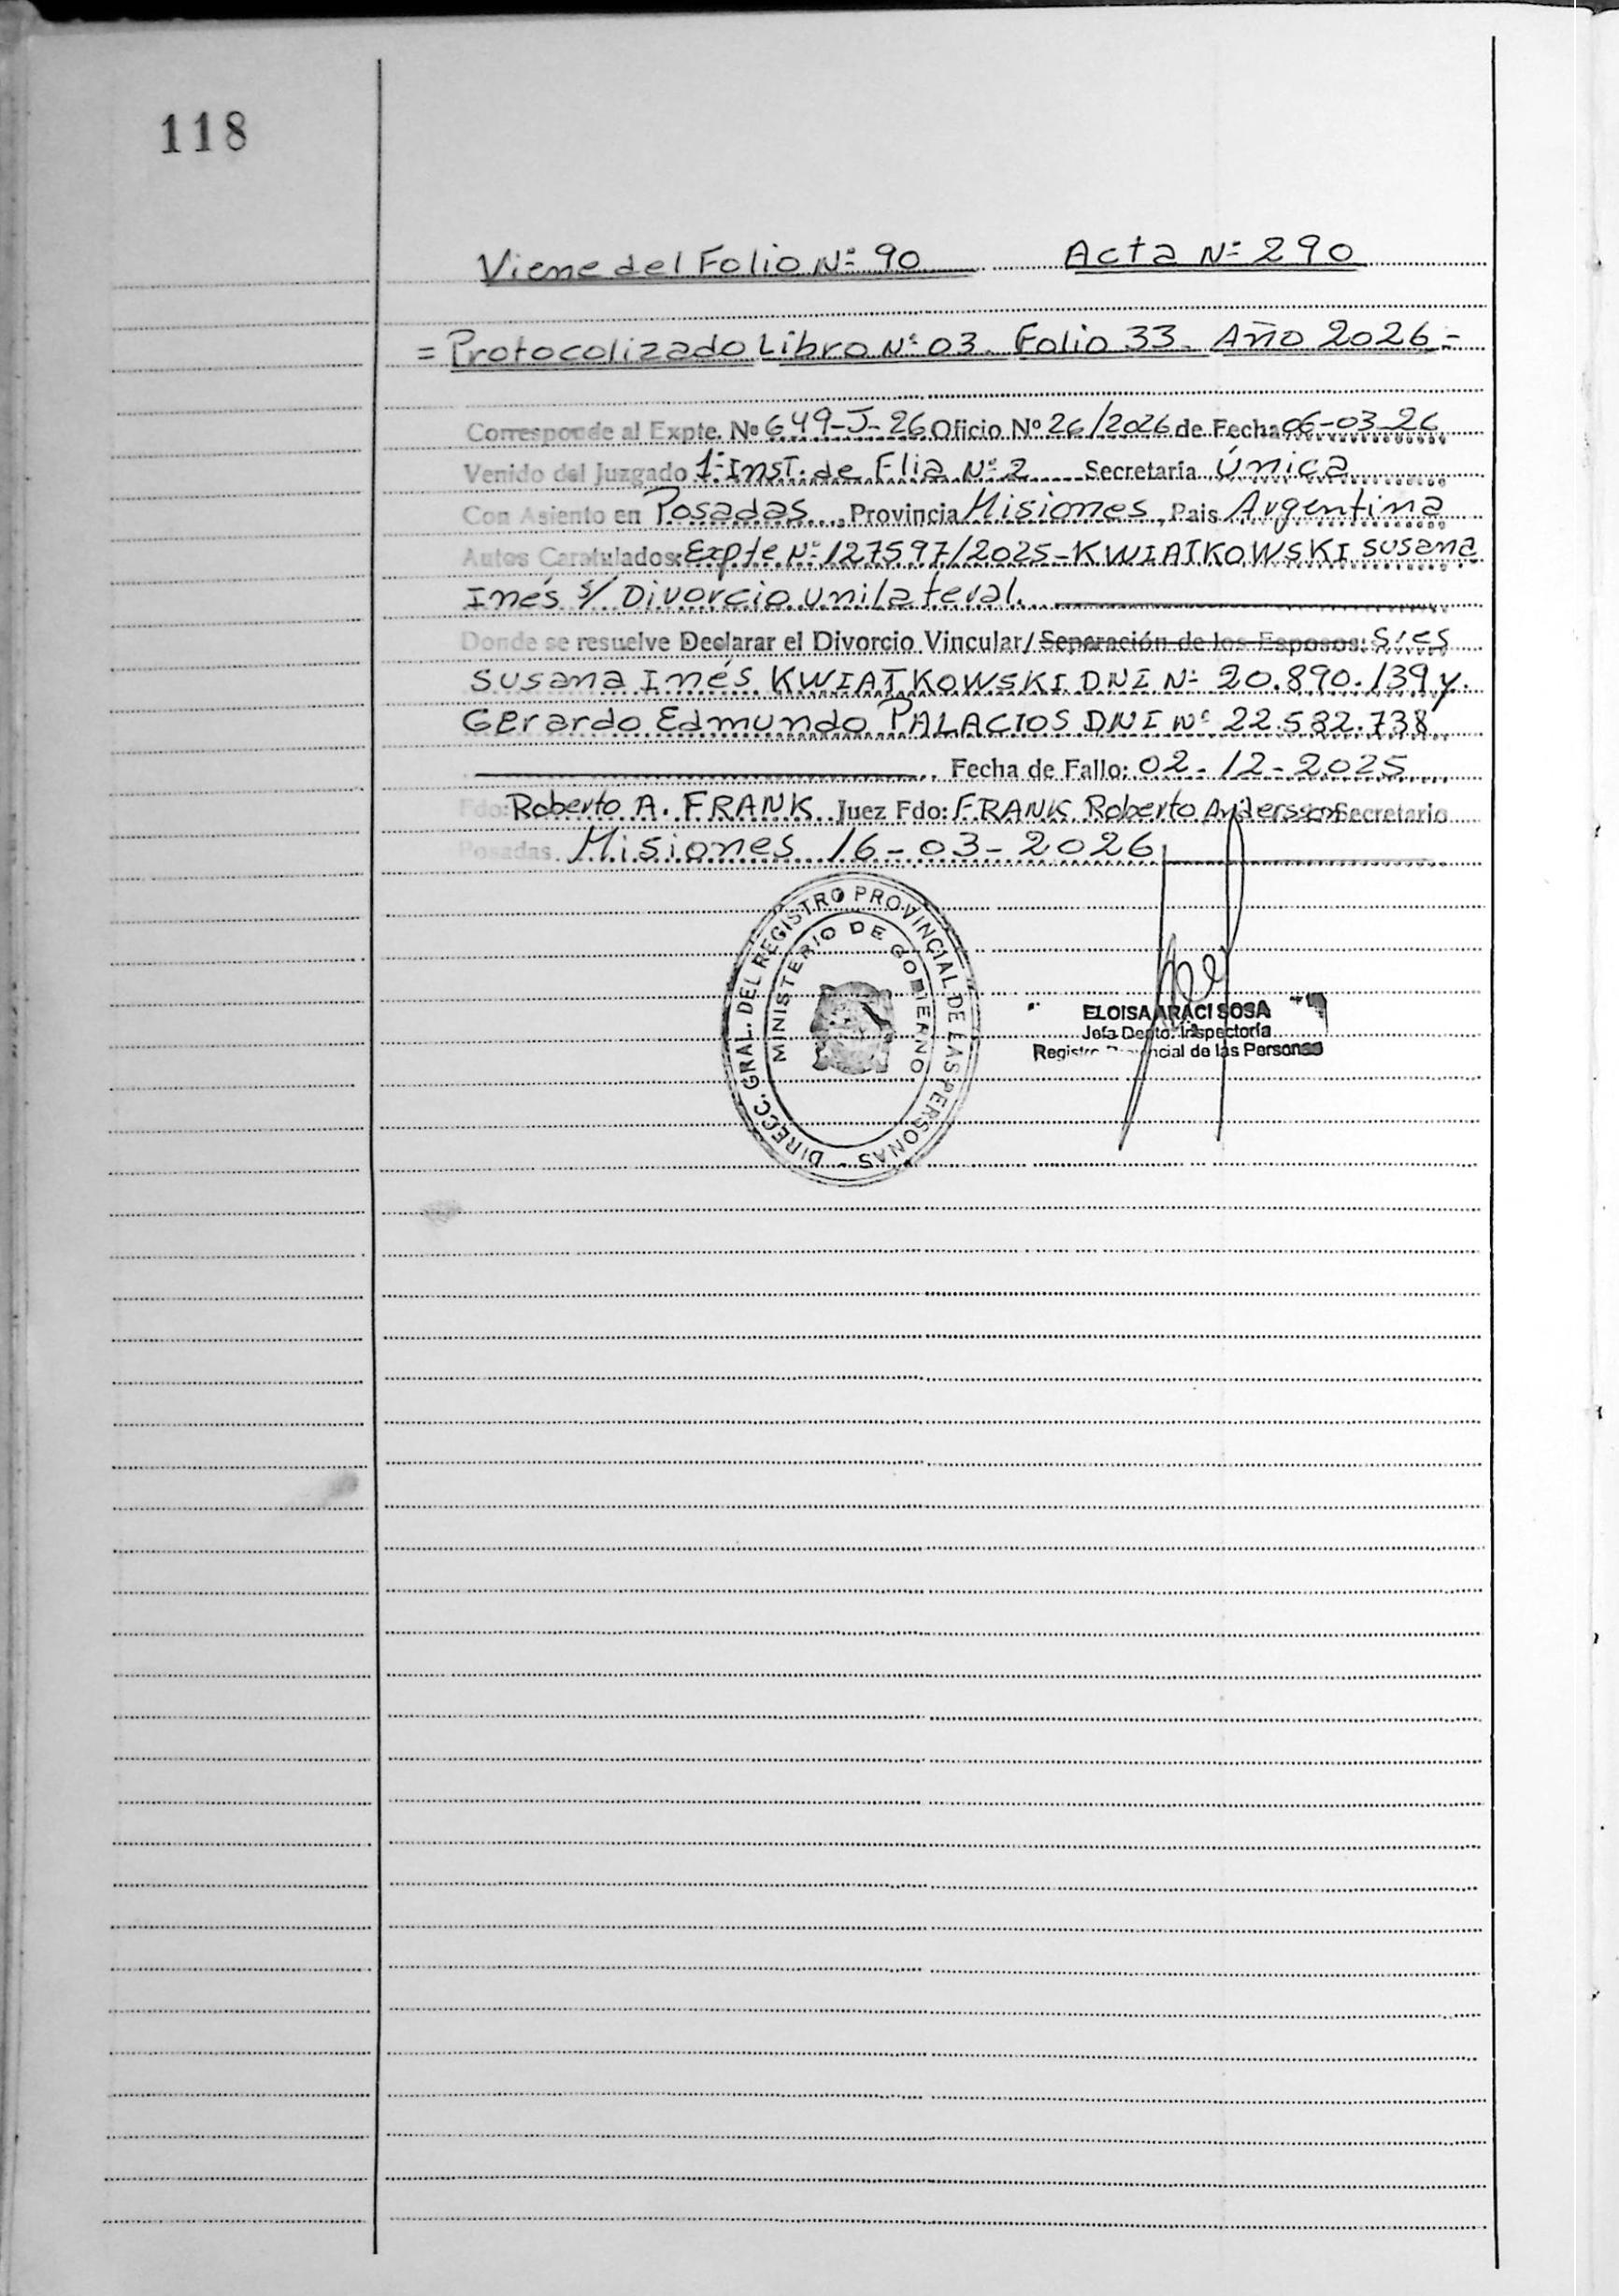 118
Viene del Folio Nº 90 Acta Nº 290
= Protocolizado Libro Nº 03. Folio 33. Año 2026.-
Corresponde al Expte. Nº 649-J-26 Oficio Nº 26/2026 de Fecha 06-03-26
Venido del Juzgado 1ª Inst. de Flia Nº 2 Secretaría Única
Con Asiento en Posadas, Provincia Misiones, Pais Argentina
Autos Caratulados: Expte Nº 127597/2025-KWIATKOWSKI Susana
Inés s/ Divorcio unilateral.
Donde se resuelve Declarar el Divorcio Vincular/Separación de los Esposos: Sres
Susana Inés KWIATKOWSKI DNI Nº 20.890.139 y.
Gerardo Edmundo PALACIOS DNI Nº 22.582.738
Fecha de Fallo: 02-12-2025
Fdo: Roberto A. FRANK Juez Fdo: FRANK Roberto Andersson Secretario
Posadas Misiones 16-03-2026
DIRECC. GRAL. DEL REGISTRO PROVINCIAL DE LAS PERSONAS -
MINISTERIO DE GOBIERNO
ELOISA ARACI SOSA
Jefa Depto. Inspectoría
Registro Provincial de las Personas